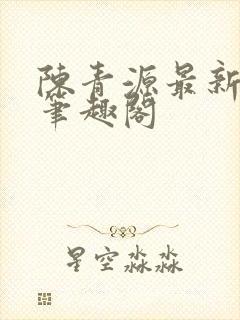 陳青源最新
筆趣閣
星空淼淼